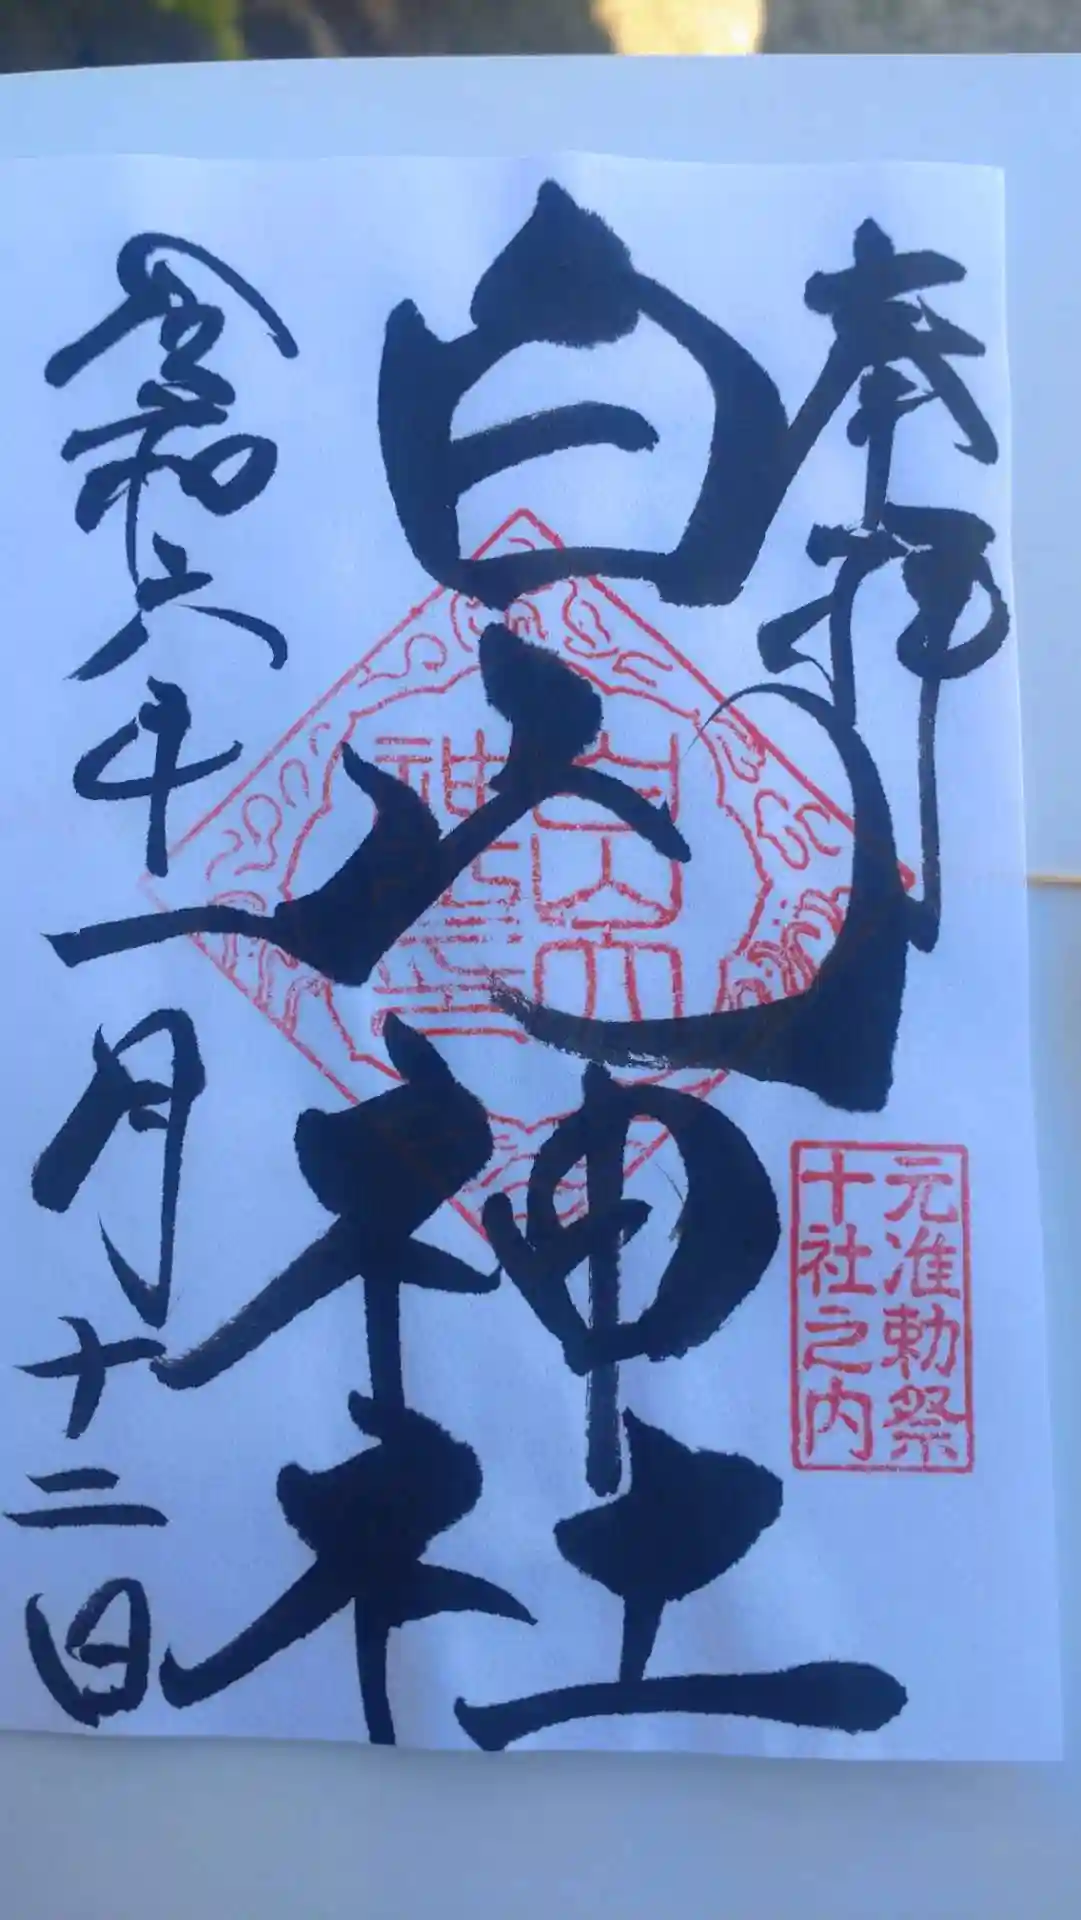 奉拝
元准勅祭
十社之内
白山神社
白山
神社
令和六年十一月十二日